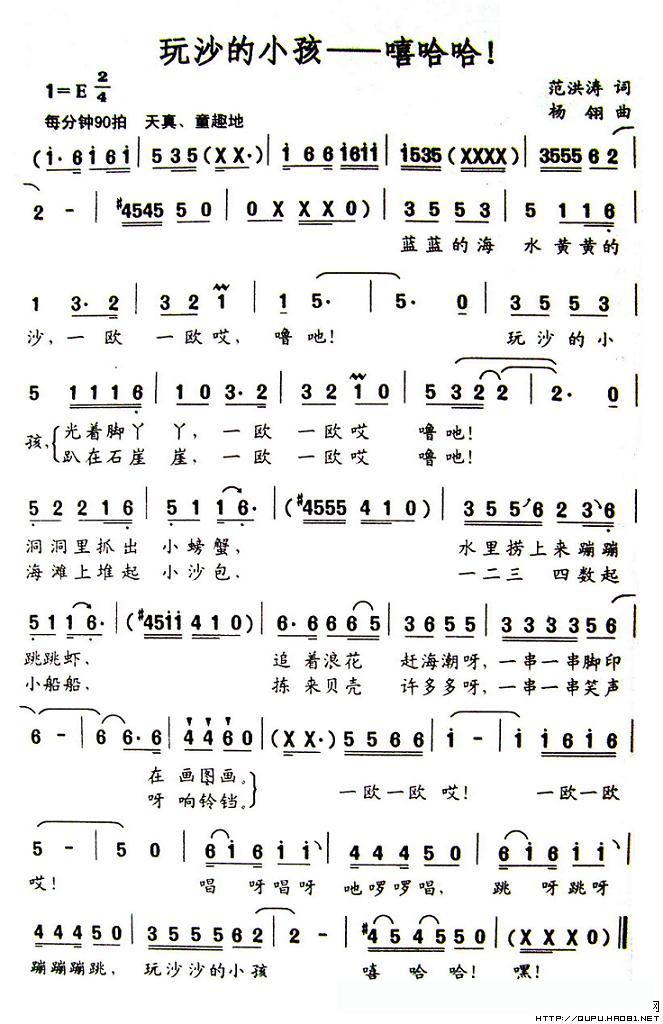 玩沙的小孩——嘻哈哈！
1=E 2/4
范洪涛 词
每分钟90拍 天真、童趣地
杨 翎 曲
(i·6 i6i | 535(XX·) | i66 i6ii | i535(XXXX) | 355562 |
2 - | #454550 | 0X XX0) | 35 53 | 5 116 |
蓝蓝的海 水黄黄的
1 3·2 | 32 1 | 1 5· | 5· 0 | 35 53 |
沙，一欧 一欧哎，噜吔！ 玩沙的小
5 1116 | 10 3·2 | 32 10 | 5322 | 2· 0 |
孩，光着脚丫 丫，一欧 一欧哎 噜吔！
趴在石崖 崖，一欧 一欧哎 噜吔！
52216 | 5116· | (#4555 410) | 3556 23·6 |
洞洞里抓出 小螃蟹， 水里捞上来蹦蹦
海滩上堆起 小沙包， 一二三 四数起
5116· | (#45ii 410) | 6·6655 | 3655 | 333356 |
跳跳虾， 追着浪花 赶海潮呀，一串一串脚印
小船船， 拣来贝壳 许多多呀，一串一串笑声
6 - | 66·6 | 4460 | (XX·) | 5566 | i - | i i6i6 |
在 画图画。
呀 响铃铛。
一欧一欧 哎！ 一欧一欧
5 - | 50 | 6i6i | 44450 | 6i6ii |
哎！ 唱 呀唱呀 吔啰啰唱， 跳 呀跳呀
44450 | 355562 | 2 - | #45450 | (XXX0) ‖
蹦蹦蹦跳， 玩沙沙的小孩 嘻 哈哈！嘿！
HTTP://QUPU.HAO81.NET